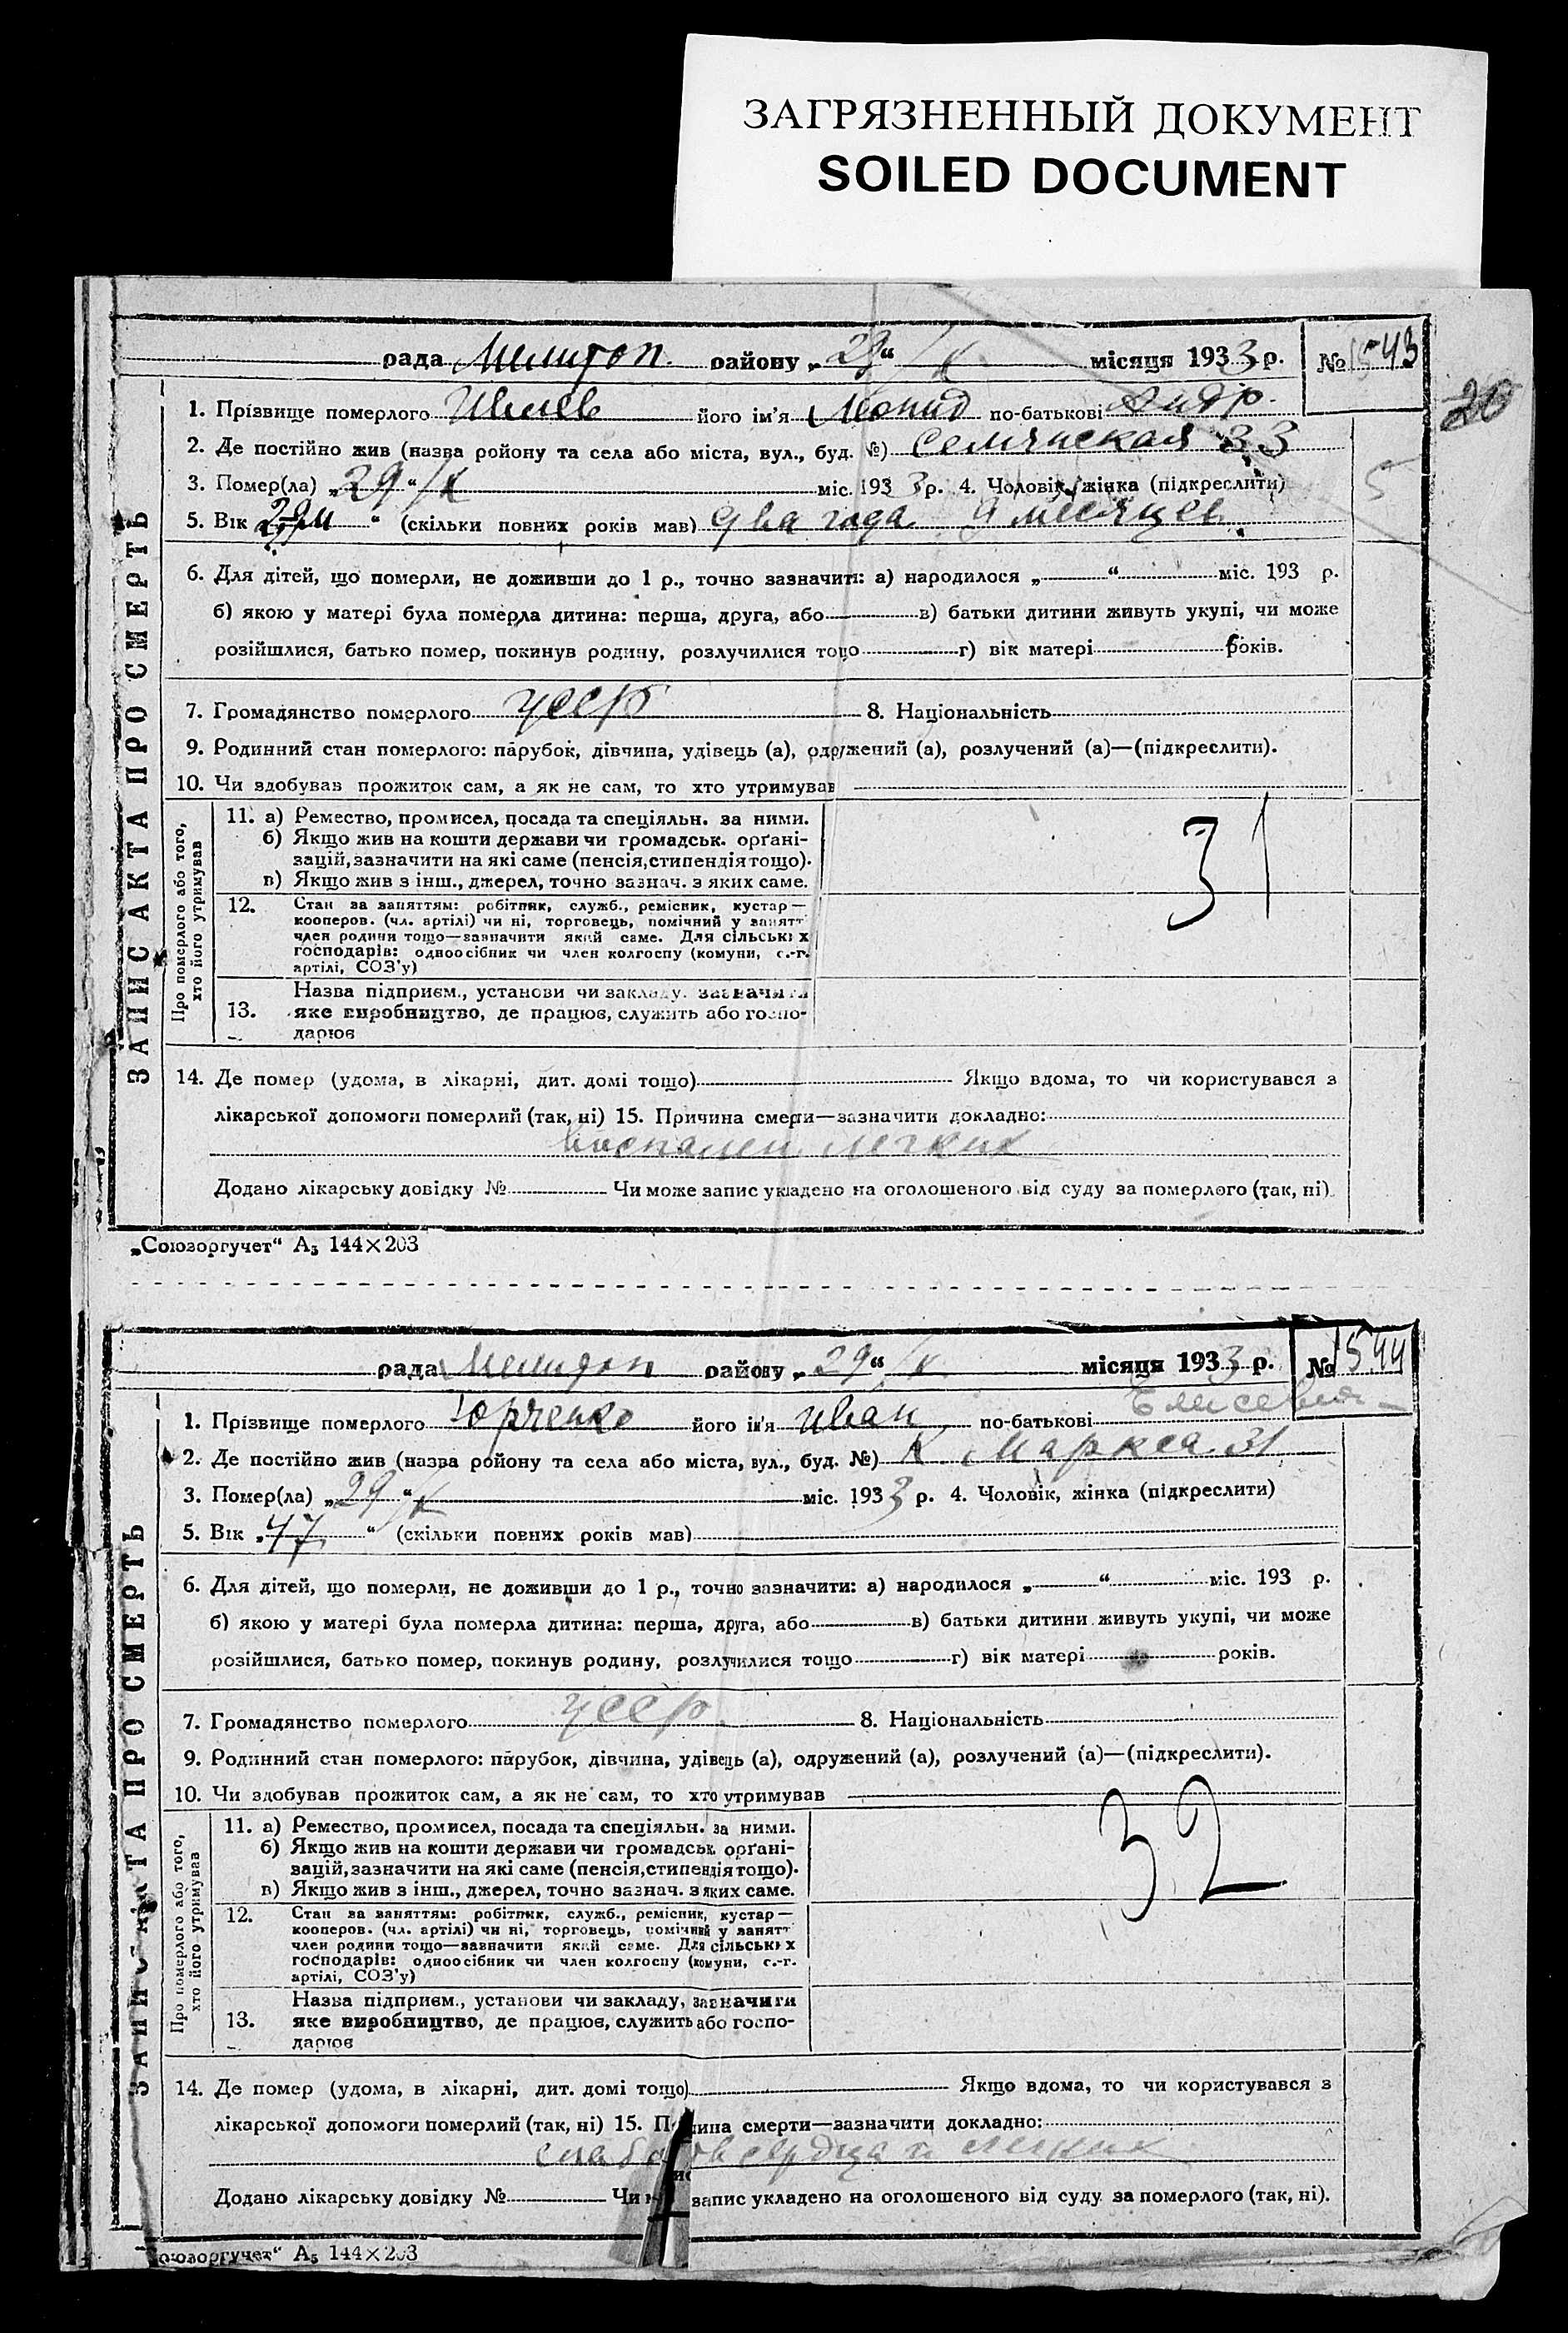 ЗАГРЯЗНЕННЫЙ ДОКУМЕНТ
SOILED DOCUMENT
рада Мелитоп. району „29“ /X місяця 1933 р. № 1543
20
1. Прізвище померлого його ім'я Леонид по-батькові Андр.
2. Де постійно жив (назва ройону та села або міста, вул., буд. №) 33
3. Помер(ла) „29“ /X міс. 1933 р. 4. Чоловік, жінка (підкреслити)
5. Вік „ “ (скільки повних років мав) два года 9 месяцев
6. Для дітей, що померли, не доживши до 1 р., точно зазначити: а) народилося „ “ міс. 193 р.
б) якою у матері була померла дитина: перша, друга, або в) батьки дитини живуть укупі, чи може
розійшлися, батько помер, покинув родину, розлучилися тощо г) вік матері років.
7. Громадянство померлого усср 8. Національність
9. Родинний стан померлого: парубок, дівчина, удівець (а), одружений (а), розлучений (а)—(підкреслити).
10. Чи здобував прожиток сам, а як не сам, то хто утримував
ЗАПИС АКТА ПРО СМЕРТЬ
Про померлого або того,
хто його утримував
11. а) Ремество, промисел, посада та спеціяльн. за ними.
б) Якщо жив на кошти держави чи громадськ. орґані-
зацій, зазначити на які саме (пенсія, стипендія тощо).
в) Якщо жив з інш., джерел, точно зазнач. з яких саме.
31
12. Стан за заняттям: робітник, служб., ремісник, кустар—
кооперов. (чл. артілі) чи ні, торговець, помічний у занятт
член родини тощо—зазначити який саме. Для сільських
господарів: одноосібник чи член колгоспу (комуни, с.-г.
артілі, СОЗ'у)
13. Назва підприєм., установи чи закладу, зазначити
яке виробництво, де працює, служить або госпо-
дарює
14. Де помер (удома, в лікарні, дит. домі тощо) Якщо вдома, то чи користувався з
лікарської допомоги померлий (так, ні) 15. Причина смерти—зазначити докладно:
воспален. легких
Додано лікарську довідку № Чи може запис укладено на оголошеного від суду за померлого (так, ні).
„Союзоргучет“ А5 144×203
рада Мелитоп району „29“ /X місяця 1933 р. № 1544
1. Прізвище померлого Юрченко його ім'я Иван по-батькові Елисеевич
2. Де постійно жив (назва ройону та села або міста, вул., буд. №) К. Маркса 31
3. Помер(ла) „29“ /X міс. 1933 р. 4. Чоловік, жінка (підкреслити)
5. Вік „47“ (скільки повних років мав)
6. Для дітей, що померли, не доживши до 1 р., точно зазначити: а) народилося „ “ міс. 193 р.
б) якою у матері була померла дитина: перша, друга, або в) батьки дитини живуть укупі, чи може
розійшлися, батько помер, покинув родину, розлучилися тощо г) вік матері років.
7. Громадянство померлого усср 8. Національність
9. Родинний стан померлого: парубок, дівчина, удівець (а), одружений (а), розлучений (а)—(підкреслити).
10. Чи здобував прожиток сам, а як не сам, то хто утримував
ЗАПИС АКТА ПРО СМЕРТЬ
Про померлого або того,
хто його утримував
11. а) Ремество, промисел, посада та спеціяльн. за ними.
б) Якщо жив на кошти держави чи громадськ. орґані-
зацій, зазначити на які саме (пенсія, стипендія тощо).
в) Якщо жив з інш., джерел, точно зазнач. з яких саме.
32
12. Стан за заняттям: робітник, служб., ремісник, кустар—
кооперов. (чл. артілі) чи ні, торговець, помічний у занятт
член родини тощо—зазначити який саме. Для сільських
господарів: одноосібник чи член колгоспу (комуни, с.-г.
артілі, СОЗ'у)
13. Назва підприєм., установи чи закладу, зазначити
яке виробництво, де працює, служить або госпо-
дарює
14. Де помер (удома, в лікарні, дит. домі тощо) Якщо вдома, то чи користувався з
лікарської допомоги померлий (так, ні) 15. смерти—зазначити докладно:
сердца и
Додано лікарську довідку № Чи запис укладено на оголошеного від суду за померлого (так, ні).
оюзоргучет“ А5 144×203